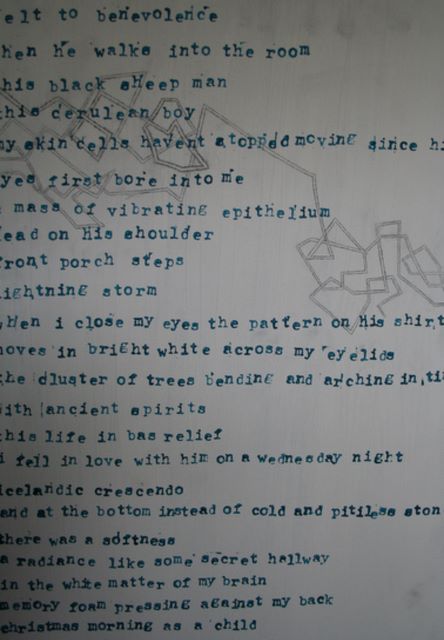 elt to benevolence
hen he walks into the room
his black sheep man
this cerulean boy
my skin cells havent stopped moving since hi
yes first bore into me
mass of vibrating epithelium
ead on his shoulder
front porch steps
ightning storm
when i close my eyes the pattern on his shirt
oves in bright white across my eyelids
the cluster of trees bending and arching in ti
ith ancient spirits
this life in bas relief
i fell in love with him on a wednesday night
icelandic crescendo
and at the bottom instead of cold and pitiless ston
there was a softness
a radiance like some secret hallway
in the white matter of my brain
memory foam pressing against my back
christmas morning as a child